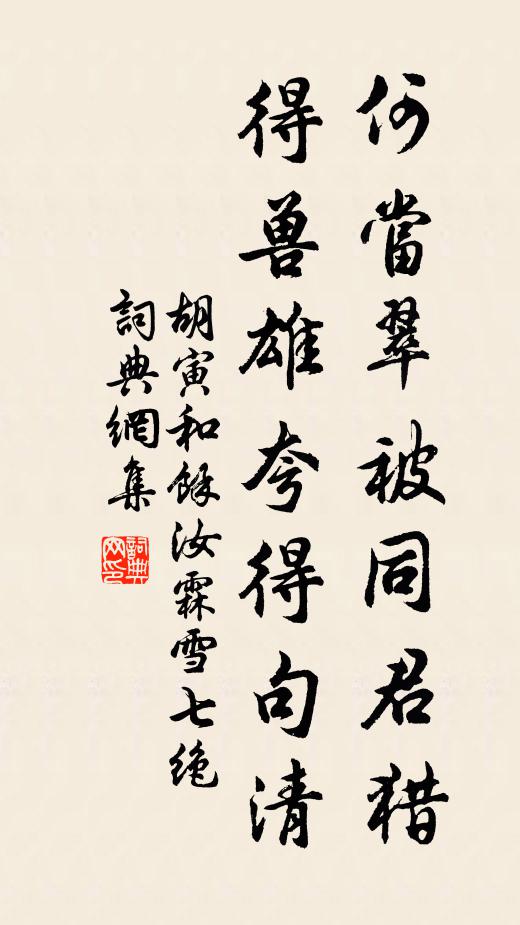 何當翠被同君猎
得兽雄夸得句清
胡寅和餘汝霖雪七绝
詞典網集
詞典网印